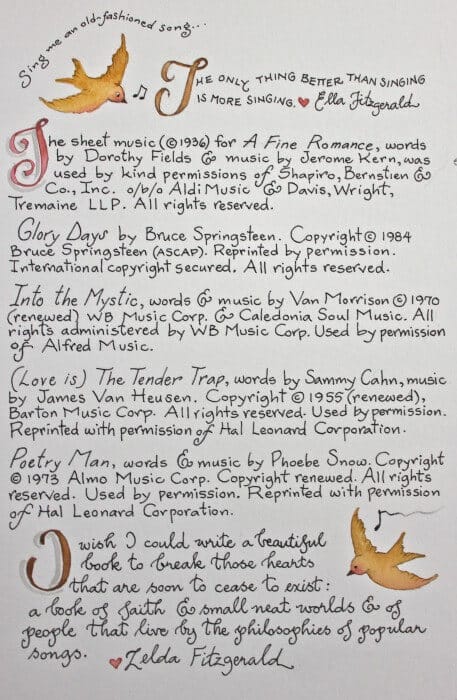 Sing me an old-fashioned song...
The only thing better than singing
is more singing. ♥ Ella Fitzgerald
The sheet music (© 1936) for A Fine Romance, words
by Dorothy Fields & music by Jerome Kern, was
used by kind permissions of Shapiro, Bernstien &
Co., Inc. o/b/o Aldi Music & Davis, Wright,
Tremaine LLP. All rights reserved.
Glory Days by Bruce Springsteen. Copyright © 1984
Bruce Springsteen (ASCAP). Reprinted by permission.
International copyright secured. All rights reserved.
Into the Mystic, words & music by Van Morrison © 1970
(renewed) WB Music Corp. & Caledonia Soul Music. All
rights administered by WB Music Corp. Used by permission
of Alfred Music.
(Love is) The Tender Trap, words by Sammy Cahn, music
by James Van Heusen. Copyright © 1955 (renewed),
Barton Music Corp. All rights reserved. Used by permission.
Reprinted with permission of Hal Leonard Corporation.
Poetry Man, words & music by Phoebe Snow. Copyright
© 1973 Almo Music Corp. Copyright renewed. All rights
reserved. Used by permission. Reprinted with permission
of Hal Leonard Corporation.
I wish I could write a beautiful
book to break those hearts
that are soon to cease to exist:
a book of faith & small neat worlds & of
people that live by the philosophies of popular
songs. ♥ Zelda Fitzgerald